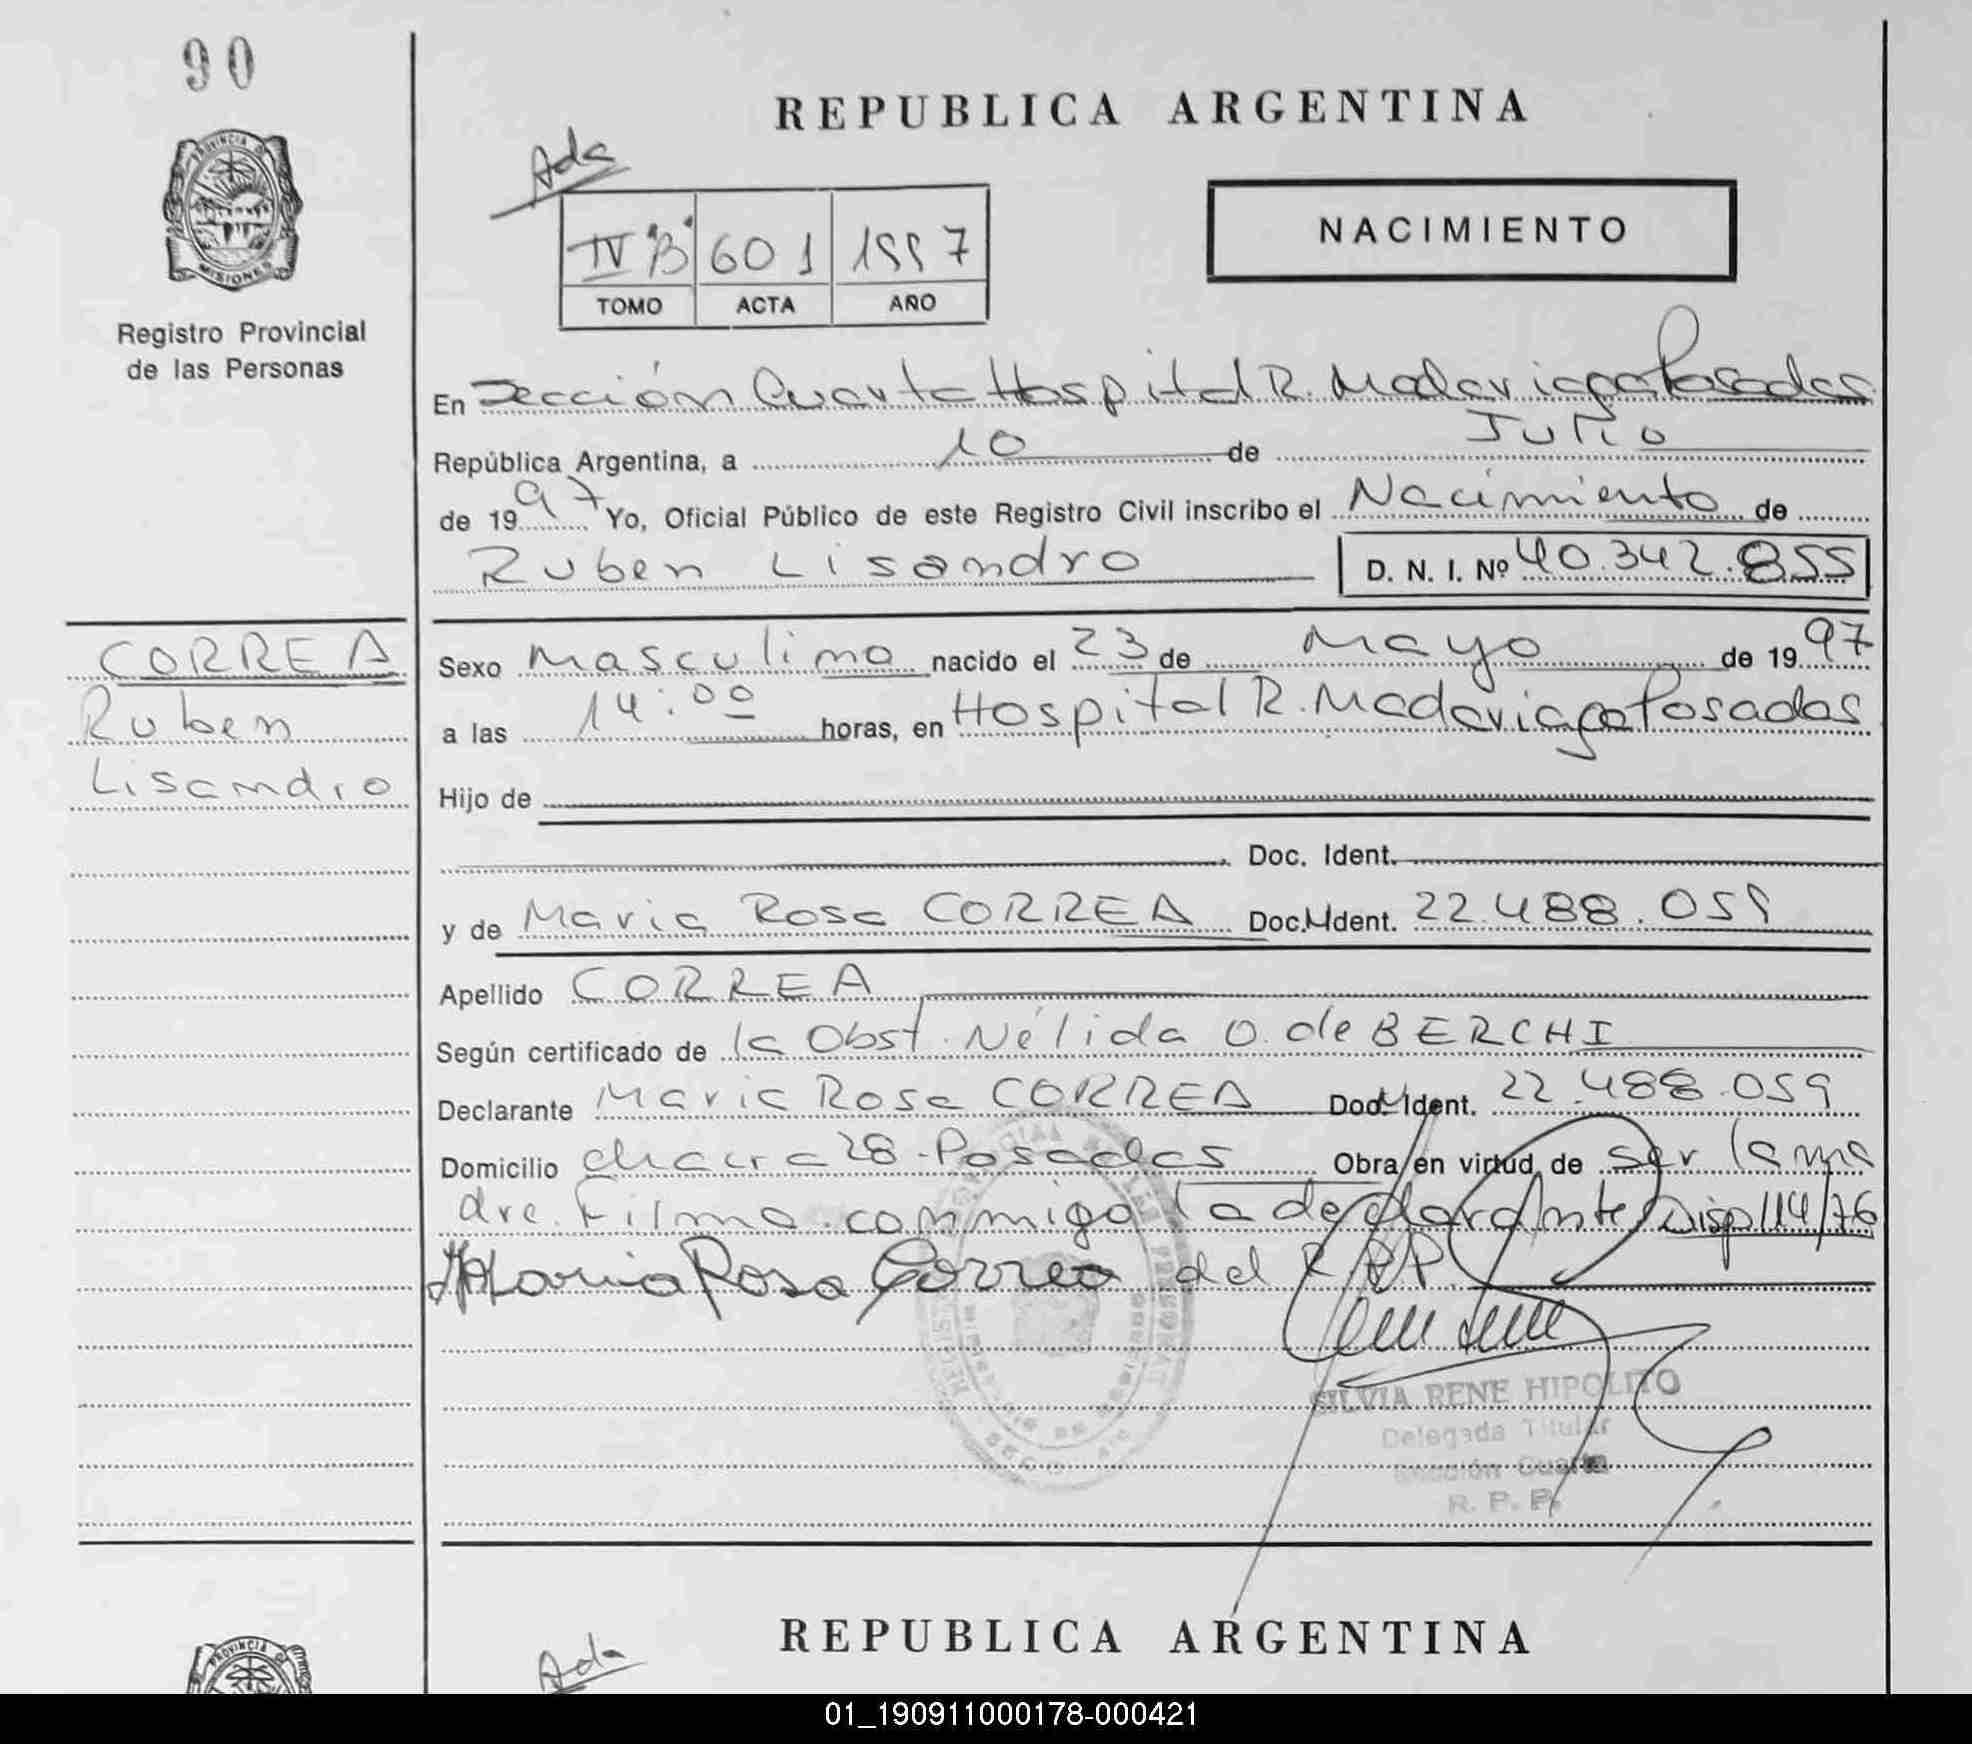 90
PROVINCIA DE
MISIONES
Registro Provincial
de las Personas
REPUBLICA ARGENTINA
Ada
IV "B" 601 1997
TOMO ACTA AÑO
NACIMIENTO
En Sección Cuarta Hospital R. Madariaga Posadas
República Argentina, a 10 de Julio
de 1997 Yo, Oficial Público de este Registro Civil inscribo el Nacimiento de
Ruben Lisandro D. N. I. Nº 40.342.855
CORREA
Ruben
Lisandro
Sexo masculino nacido el 23 de mayo de 1997
a las 14:00 horas, en Hospital R. Madariaga Posadas
Hijo de
Doc. Ident.
y de Maria Rosa CORREA Doc. Ident. 22.488.059
Apellido CORREA
Según certificado de la Obst. Nélida O. de BERCHI
Declarante Maria Rosa CORREA Doc. Ident. 22.488.059
Domicilio chacra 28 - Posadas Obra en virtud de ser la ma
dre. Firma conmigo la declarante Disp 114/76
Maria Rosa Correa del R.P.P.
SILVIA RENE HIPOLITO
Delegada Titular
Sección Cuarta
R. P. P.
REPUBLICA ARGENTINA
Ada
PROVINCIA DE
01_190911000178-000421